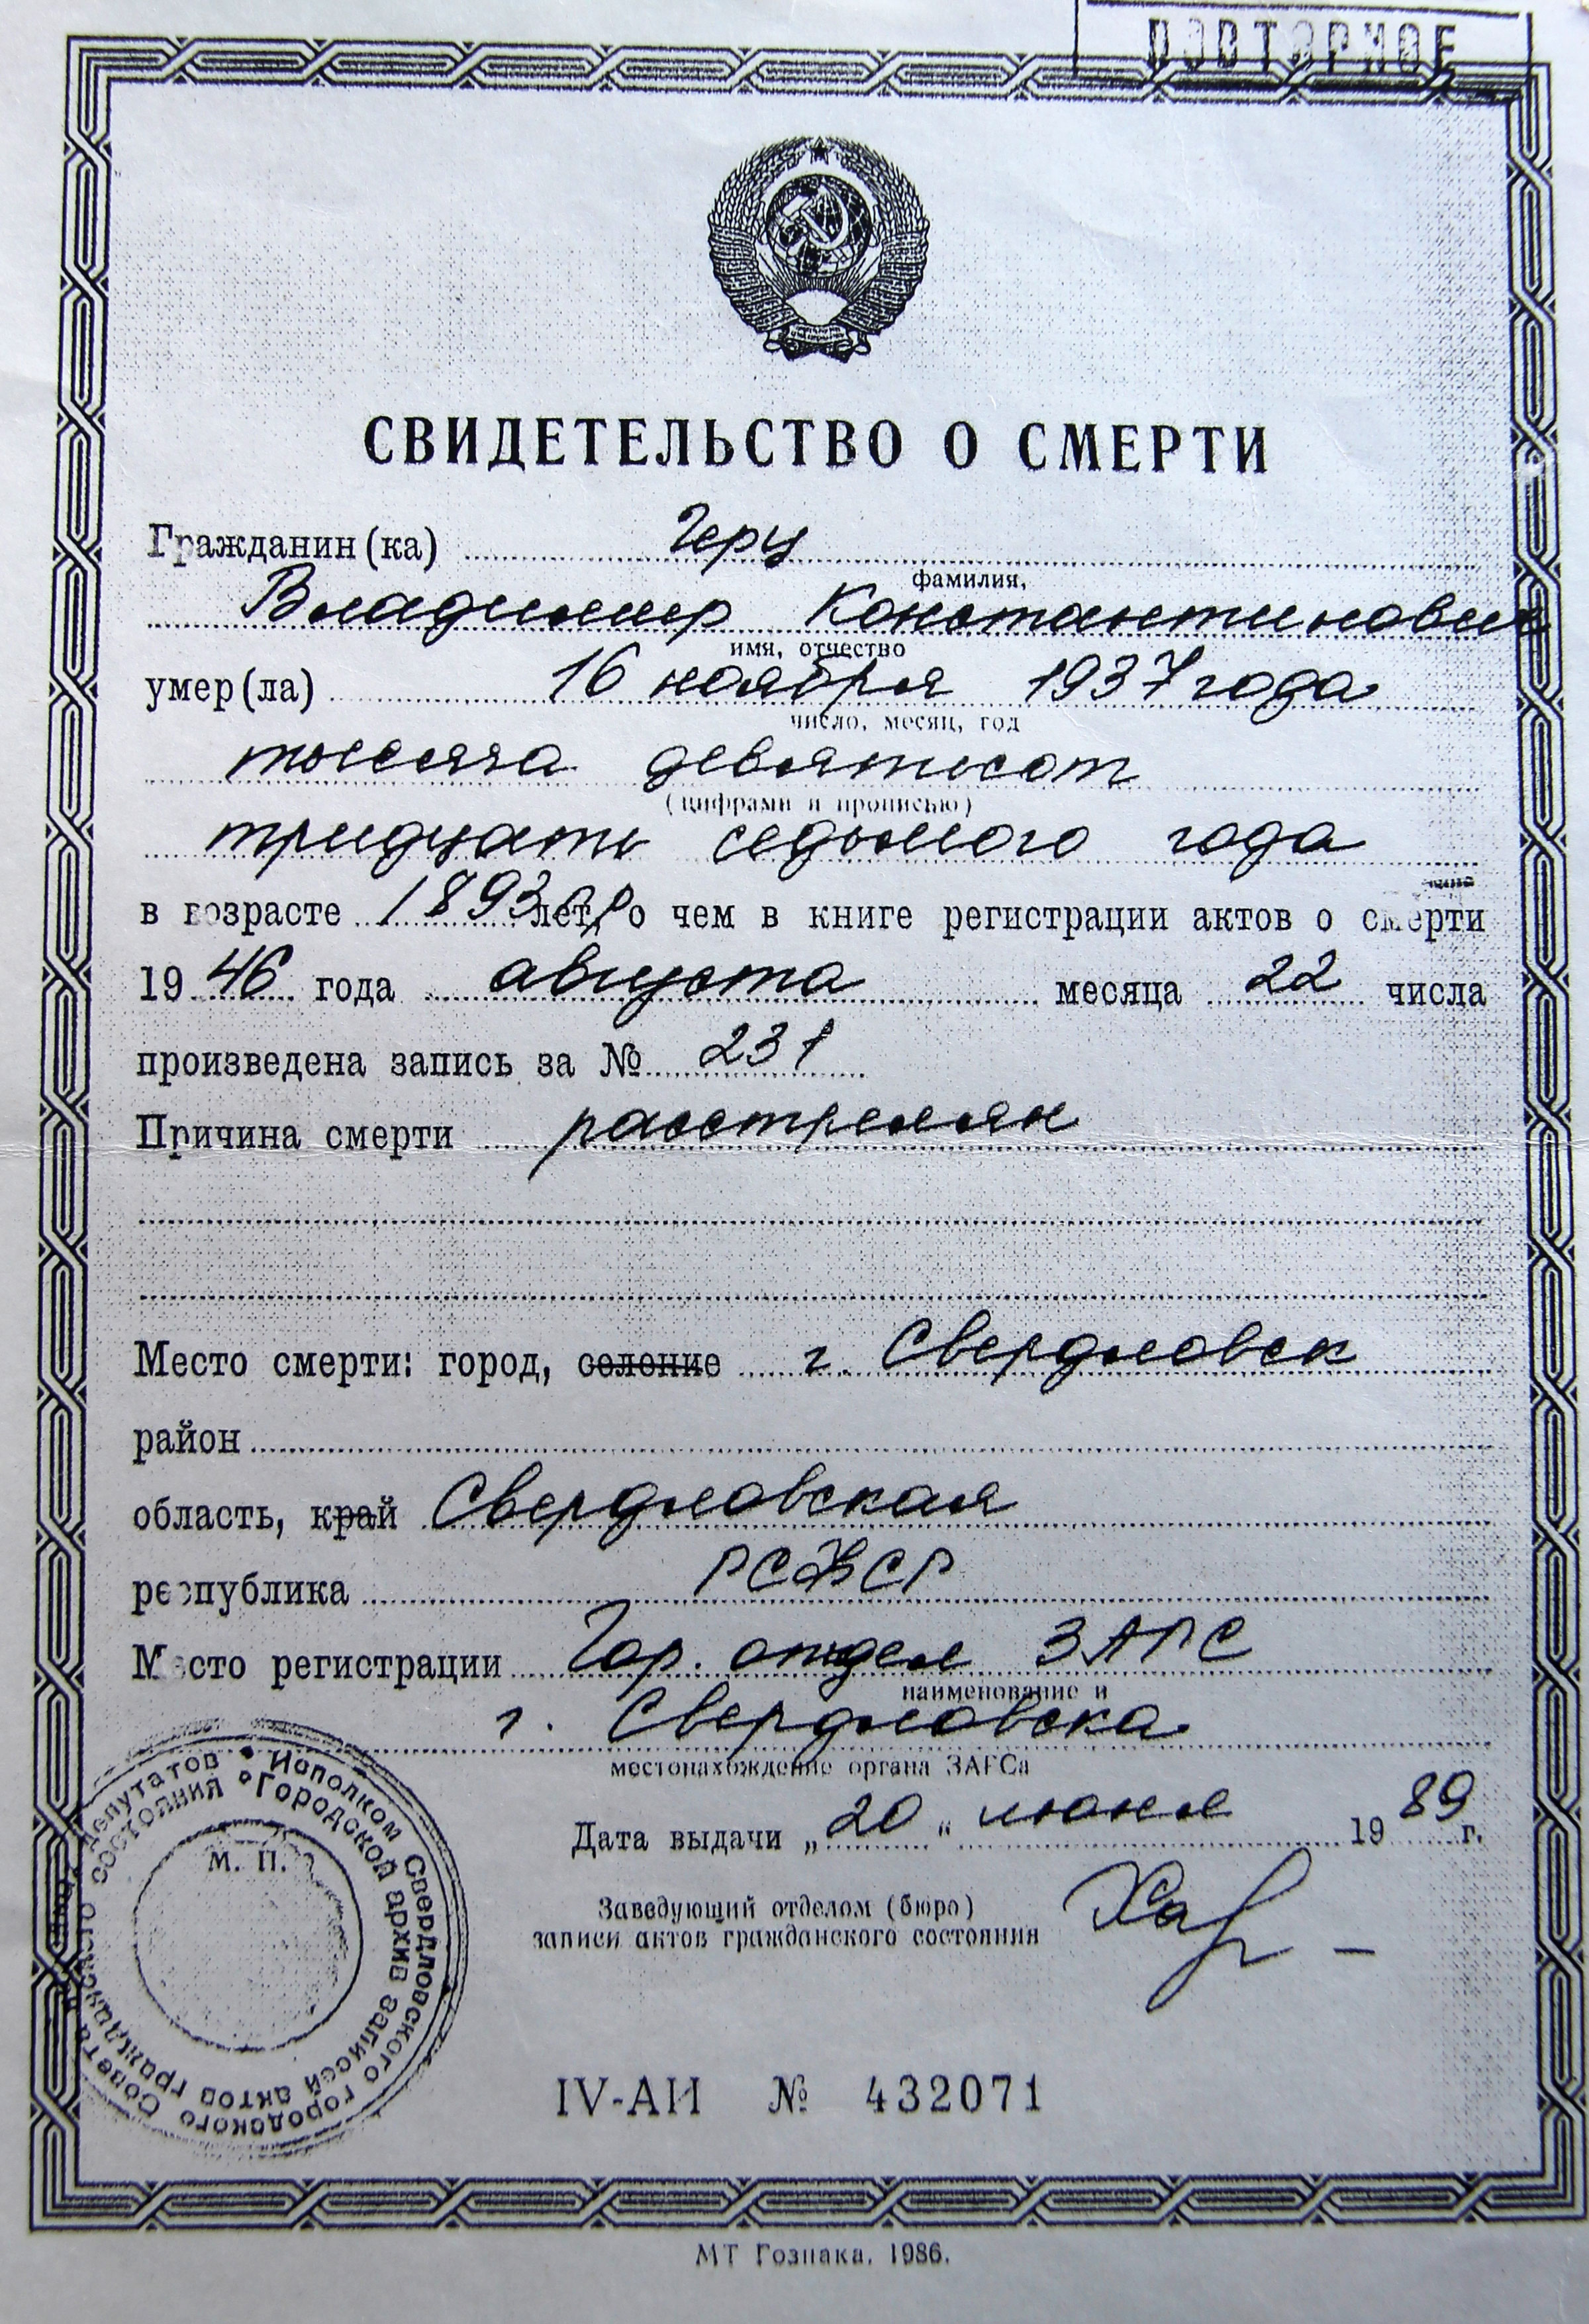 ПОВТОРНОЕ
СВИДЕТЕЛЬСТВО О СМЕРТИ
Гражданин(ка) Герц
фамилия,
Владимир Константинович
имя, отчество
умер(ла) 16 ноября 1937 года
число, месяц, год
тысяча девятисот
(цифрами и прописью)
тридцать седьмого года
в возрасте 1893 г.р. лет, о чем в книге регистрации актов о смерти
1946 года августа месяца 22 числа
произведена запись за № 231
Причина смерти расстрелян
Место смерти: город, селение г. Свердловск
район
область, край Свердловская
республика РСФСР
Место регистрации Гор. отдел ЗАГС
наименование и
г. Свердловска
местонахождение органа ЗАГСа
Дата выдачи „20“ июня 1989 г.
Заведующий отделом (бюро)
записи актов гражданского состояния
М. П.
Исполком Свердловского городского Совета депутатов
Городской архив записей актов гражданского состояния
IV-АИ № 432071
МТ Гознака. 1986.